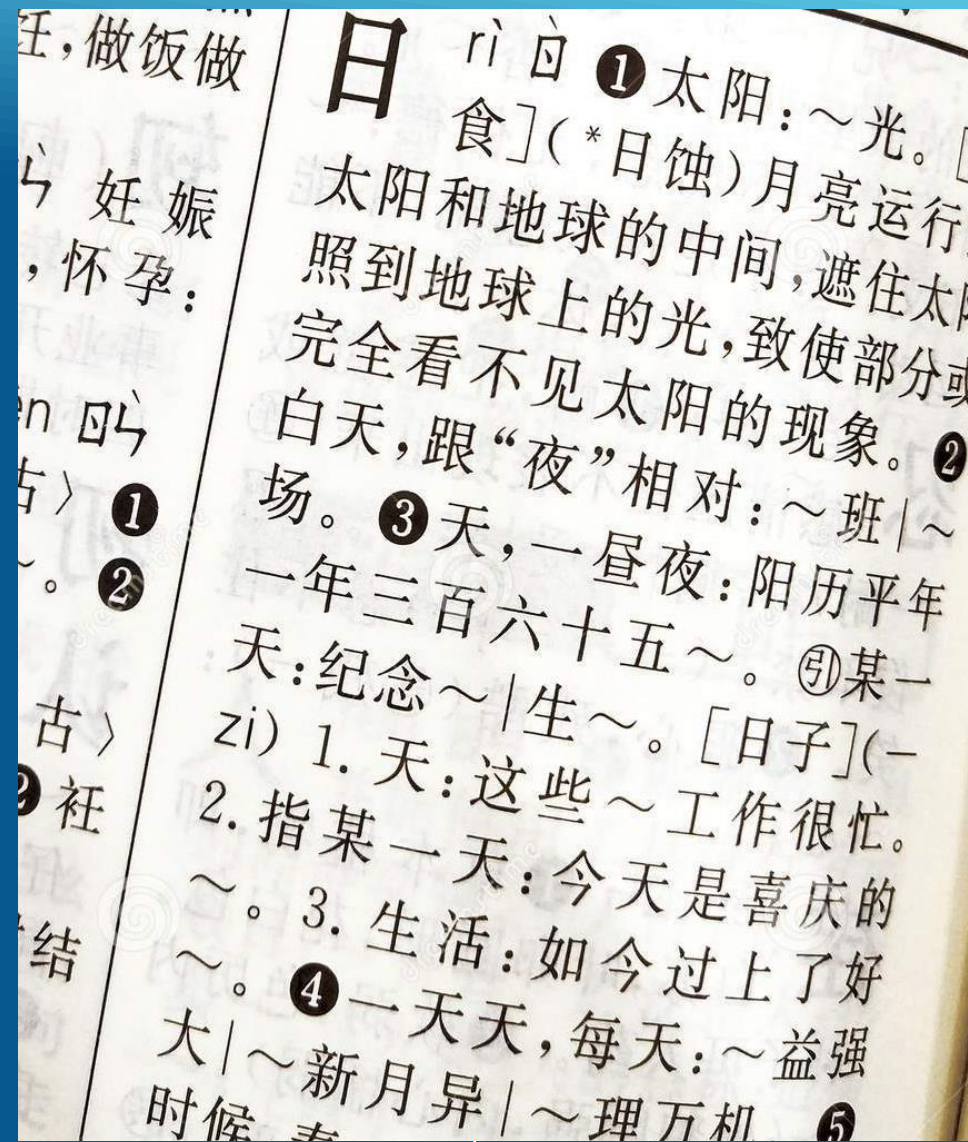 饪,做饭做
妊娠
,怀孕:
古〉❶
~。❷
古〉
❷衽
结
日 rì ㄖˋ ❶太阳:~光。[
食](*日蚀)月亮运行
太阳和地球的中间,遮住太阳
照到地球上的光,致使部分或
完全看不见太阳的现象。❷
白天,跟“夜”相对:~班|~
场。❸天,一昼夜:阳历平年
一年三百六十五~。㊁某一
天:纪念~|生~。[日子](—
zi) 1. 天:这些~工作很忙。
2. 指某一天:今天是喜庆的
~。3. 生活:如今过上了好
~。❹一天天,每天:~益强
大|~新月异|~理万机 ❺
时候